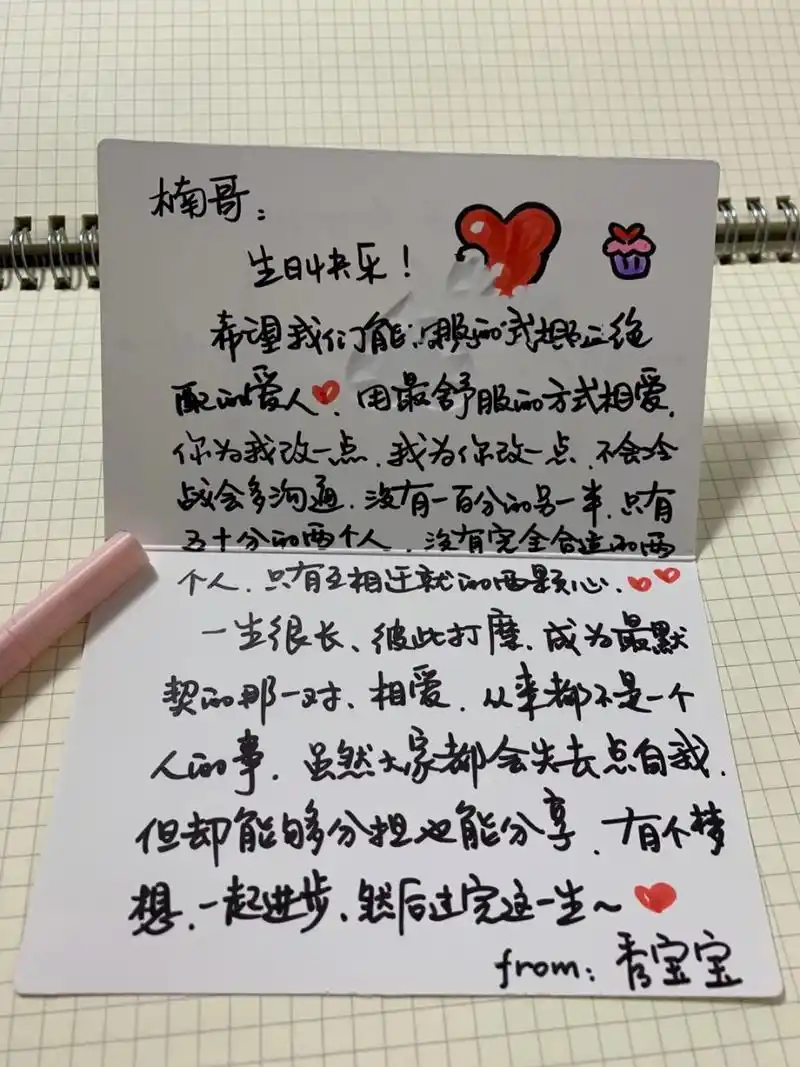 楠哥：
生日快乐！
希望我们能
配的爱人，用最舒服的方式相爱，
你为我改一点，我为你改一点，不会冷
战会多沟通，没有一百分的另一半，只有
五十分的两个人，没有完全合适的两
个人，只有互相迁就的两颗心，
一生很长、彼此打磨，成为最默
契的那一对、相爱，从来都不是一个
人的事，虽然大家都会失去点自我，
但却能够分担也能分享，有个梦
想，一起进步，然后过完这一生～
from：秀宝宝